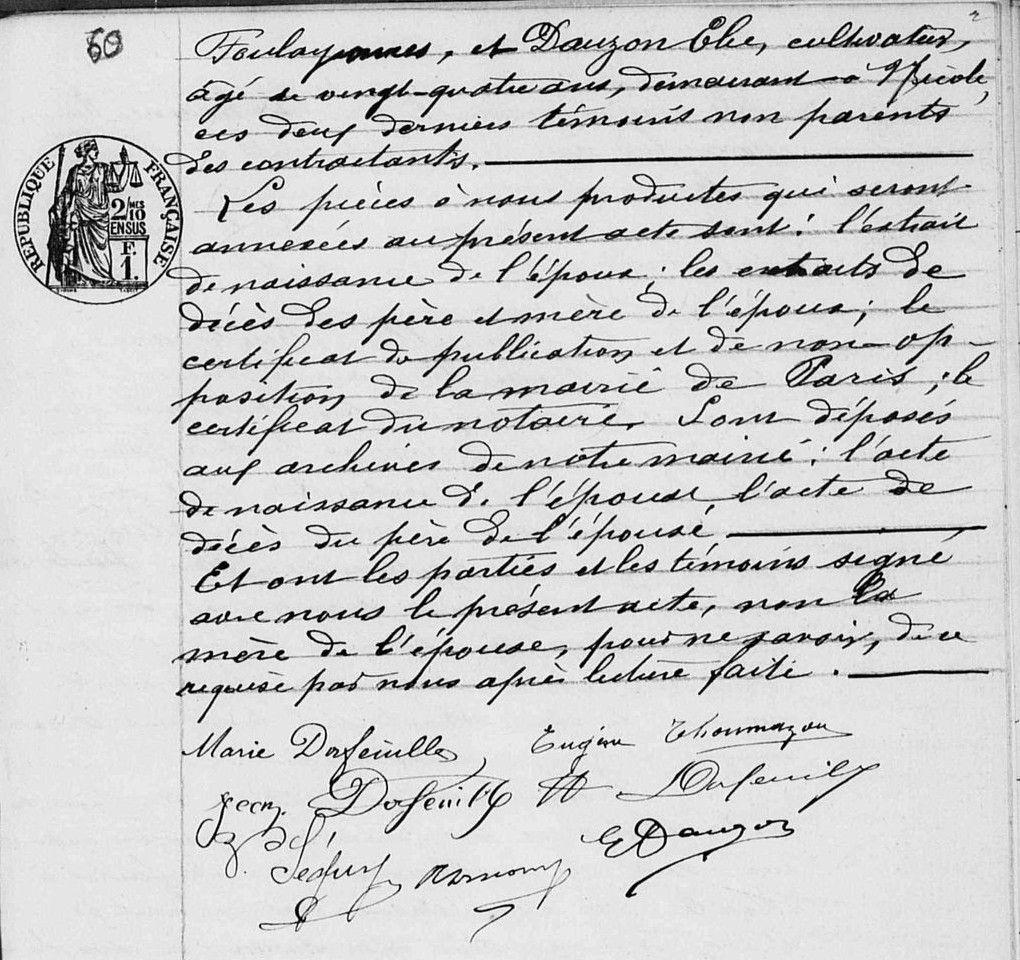 60
2
Foulayronnes, et Dauzon Elie, cultivateur,
âgé de vingt-quatre ans, demeurant à Nicole,
ces deux derniers témoins non parents
des contractants.
RÉPUBLIQUE FRANÇAISE
2/10 MES
EN SUS
F.
1.
Les pièces à nous produites qui seront
annexées au présent acte sont : l'extrait
de naissance de l'époux ; les extraits de
décès des père et mère de l'époux ; le
certificat de publication et de non-op-
position de la mairie de Paris ; le
certificat du notaire. Sont déposés
aux archives de notre mairie : l'acte
de naissance de l'épouse, l'acte de
décès du père de l'épouse.
Et ont les parties et les témoins signé
avec nous le présent acte, non la
mère de l'épouse, pour ne savoir, de ce
requise par nous après lecture faite.
Marie Dorfeuille Eugène Thoumazou
Jean Dorfeuille Dorfeuille
E Dauzon